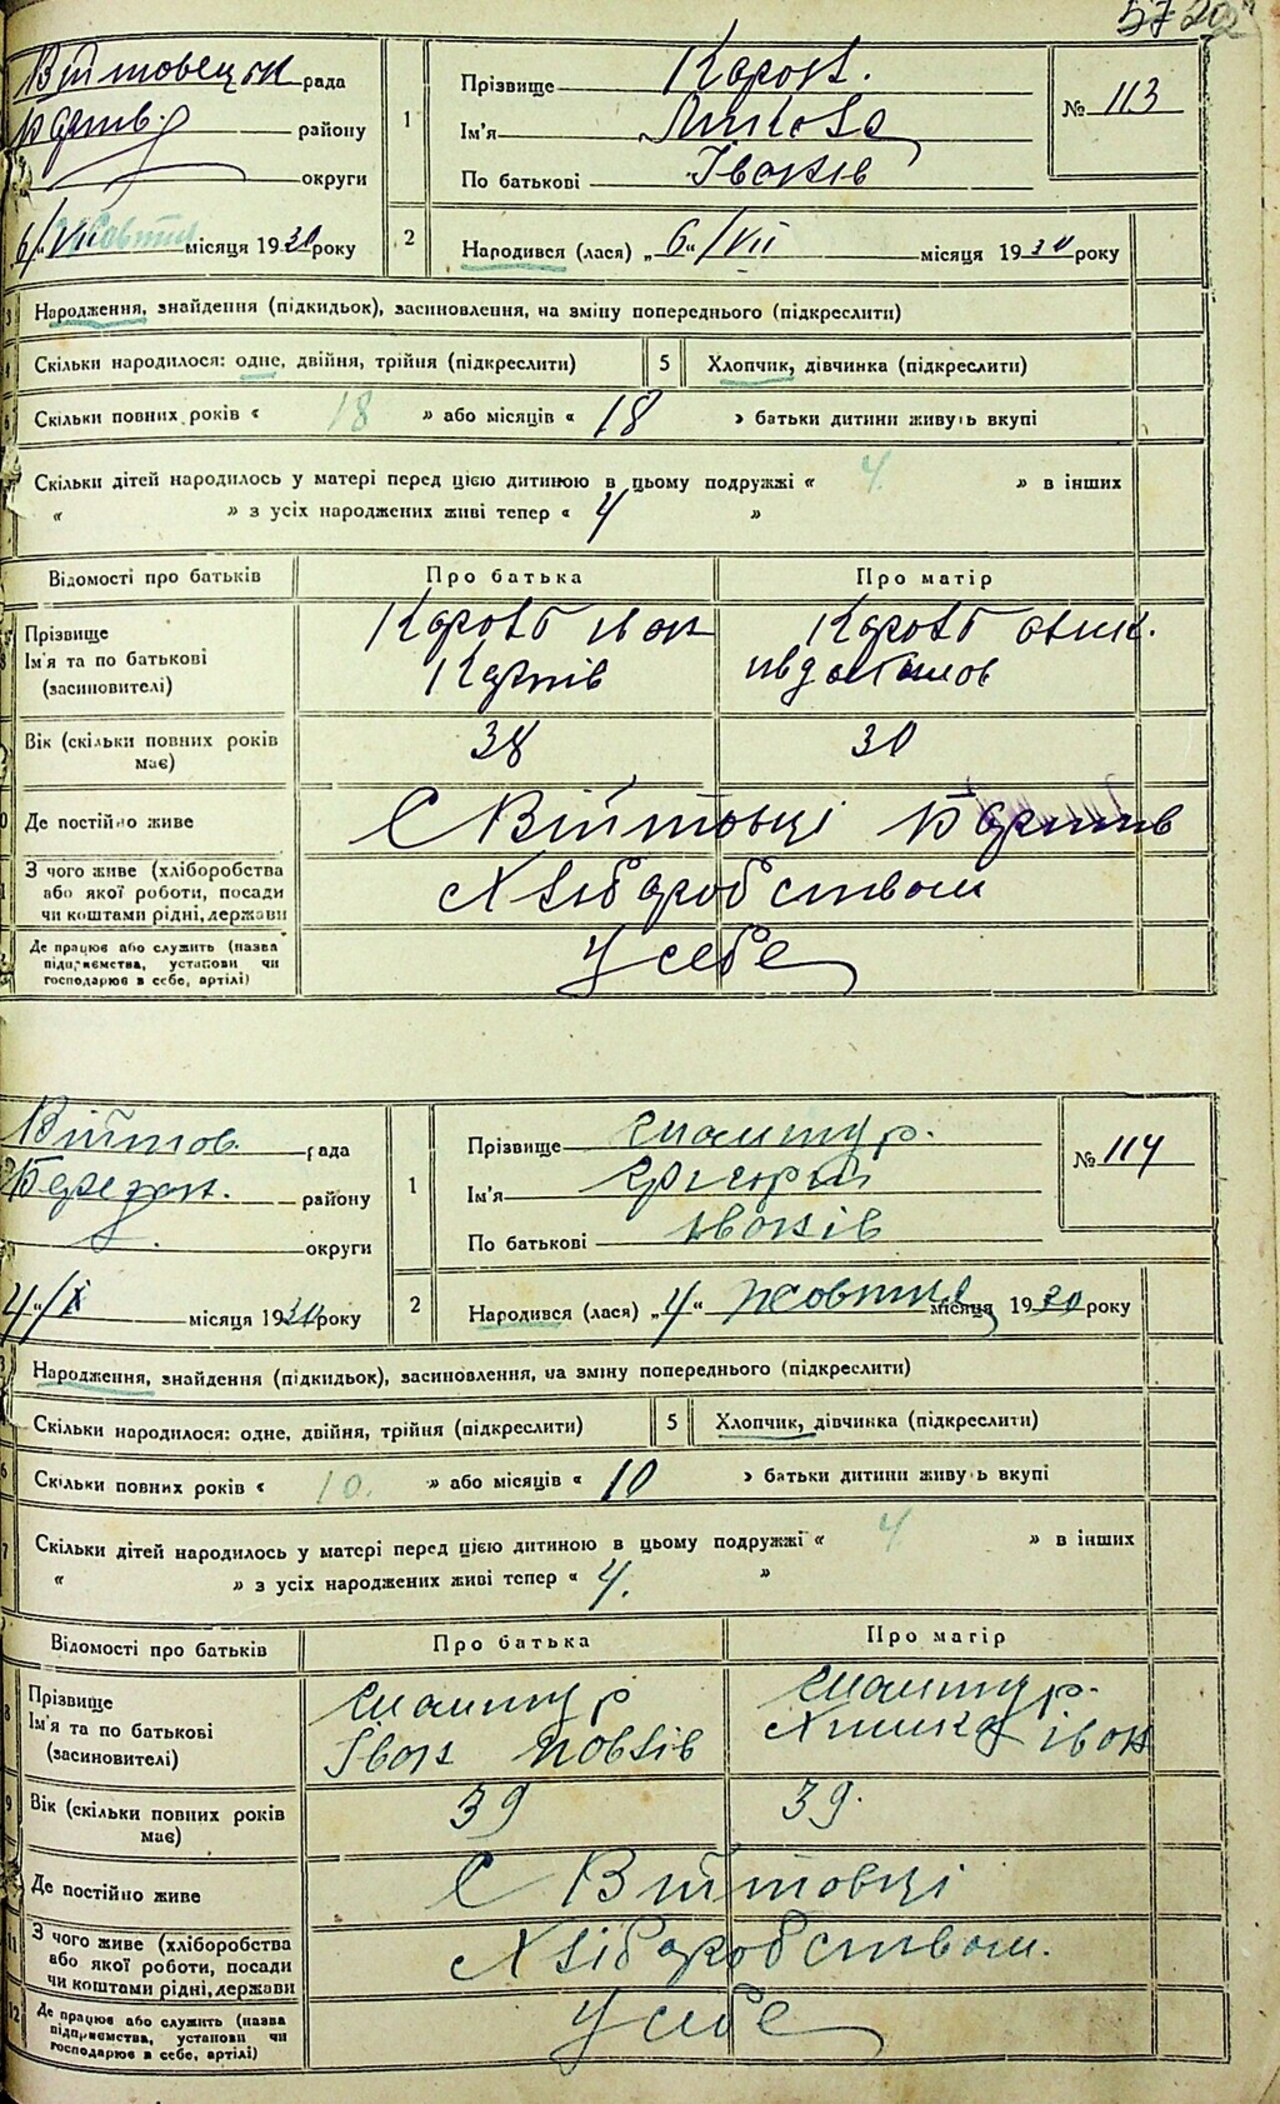 Війтовецьк рада
району
округи
6/"VII місяця 1930 року
1
Прізвище Король.
Ім'я Микола
По батькові Іванів
№ 113
2
Народився (лася) „6"/VII місяця 1930 року
Народження, знайдення (підкидьок), засиновлення, на зміну попереднього (підкреслити)
Скільки народилося: одне, двійня, трійня (підкреслити)
5 Хлопчик, дівчинка (підкреслити)
Скільки повних років « 18 » або місяців « 18 » батьки дитини живуть вкупі
Скільки дітей народилось у матері перед цією дитиною в цьому подружжі « 4. » в інших
« » з усіх народжених живі тепер « 4 »
Відомості про батьків Про батька Про матір
Прізвище
Ім'я та по батькові
(засиновителі)
Король Іван
Карпів
Король
Вік (скільки повних років має) 38 30
Де постійно живе С Війтовці
З чого живе (хліборобства
або якої роботи, посади
чи коштами рідні, держави
Хліборобством
Де працює або служить (назва
підприємства, установи чи
господарює в себе, артілі)
У себе
Війтов. рада
Березан. району
округи
4"/X місяця 1930 року
1
Прізвище
Ім'я Григорій
По батькові Іванів
№ 114
2
Народився (лася) „4" жовтня місяця 1930 року
Народження, знайдення (підкидьок), засиновлення, на зміну попереднього (підкреслити)
Скільки народилося: одне, двійня, трійня (підкреслити)
5 Хлопчик, дівчинка (підкреслити)
6 Скільки повних років « 10. » або місяців « 10 » батьки дитини живуть вкупі
7 Скільки дітей народилось у матері перед цією дитиною в цьому подружжі « 4 » в інших
« » з усіх народжених живі тепер « 4. »
Відомості про батьків Про батька Про матір
8 Прізвище
Ім'я та по батькові
(засиновителі)
Іван Павлів
Химка Іван
9 Вік (скільки повних років має) 39 39.
Де постійно живе С Війтовці
11 З чого живе (хліборобства
або якої роботи, посади
чи коштами рідні, держави
Хліборобством.
12 Де працює або служить (назва
підприємства, установи чи
господарює в себе, артілі)
У себе